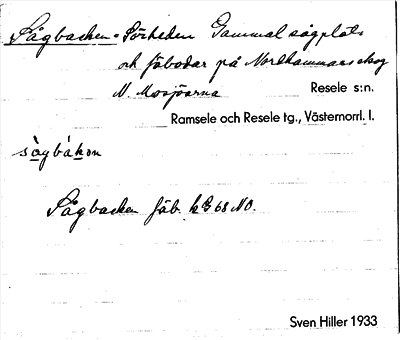 Sågbacken - Sörheden Gammal sågplats
och fäbodar på Nordhammarsskog
N. Mosjöarna Resele s:n.
Ramsele och Resele tg., Västernorrl. l.
sågbákən
Sågbacken fäb. k G 68 NO.
Sven Hiller 1933